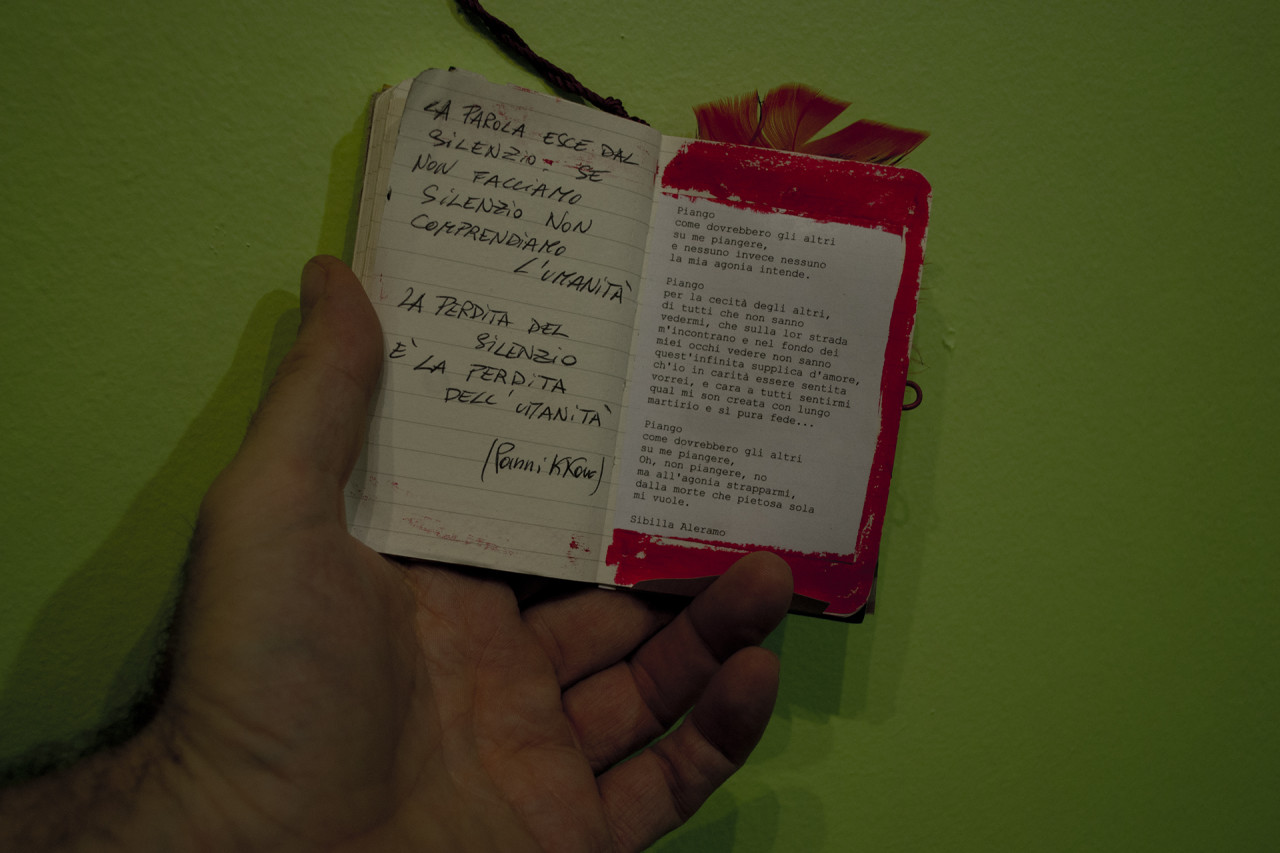 LA PAROLA ESCE DAL
SILENZIO. SE
NON FACCIAMO
SILENZIO NON
COMPRENDIAMO
L'UMANITÀ
LA PERDITA DEL
SILENZIO
È LA PERDITA
DELL'UMANITÀ
Piango
come dovrebbero gli altri
su me piangere,
e nessuno invece nessuno
la mia agonia intende.
Piango
per la cecità degli altri,
di tutti che non sanno
vedermi, che sulla lor strada
m'incontrano e nel fondo dei
miei occhi vedere non sanno
quest'infinita supplica d'amore,
ch'io in carità essere sentita
vorrei, e cara a tutti sentirmi
qual mi son creata con lungo
martirio e sì pura fede...
Piango
come dovrebbero gli altri
su me piangere,
Oh, non piangere, no
ma all'agonia strapparmi,
dalla morte che pietosa sola
mi vuole.
Sibilla Aleramo